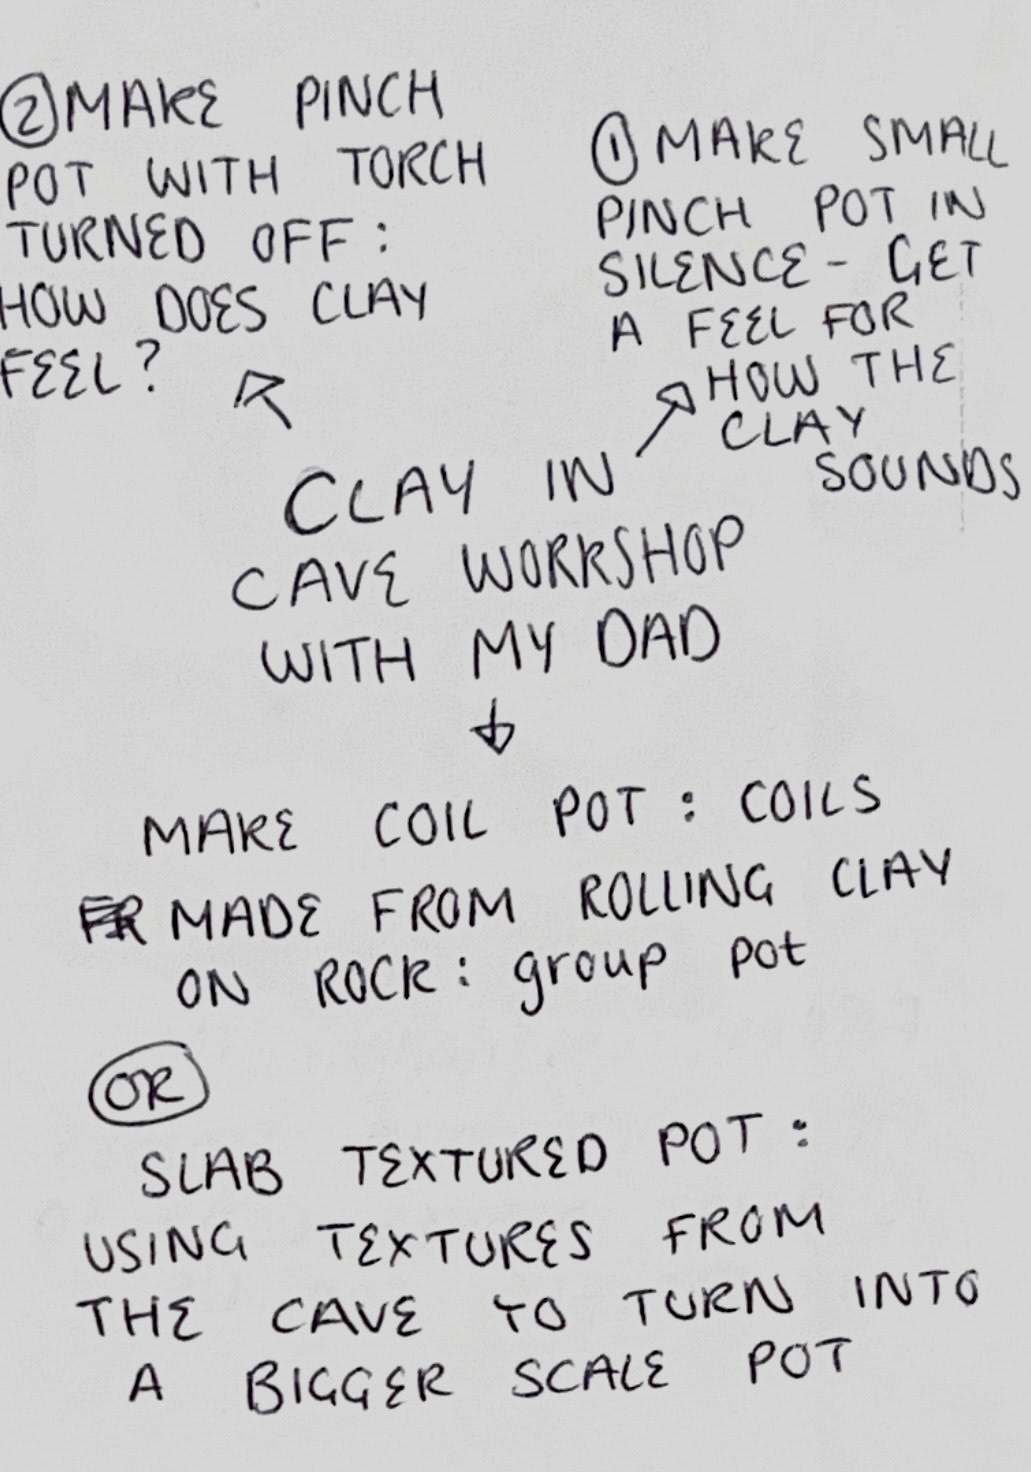 ② MAKE PINCH
POT WITH TORCH
TURNED OFF:
HOW DOES CLAY
FEEL?
① MAKE SMALL
PINCH POT IN
SILENCE - GET
A FEEL FOR
HOW THE
CLAY
SOUNDS
CLAY IN
CAVE WORKSHOP
WITH MY DAD
MAKE COIL POT: COILS
FR MADE FROM ROLLING CLAY
ON ROCK: group pot
OR
SLAB TEXTURED POT:
USING TEXTURES FROM
THE CAVE TO TURN INTO
A BIGGER SCALE POT